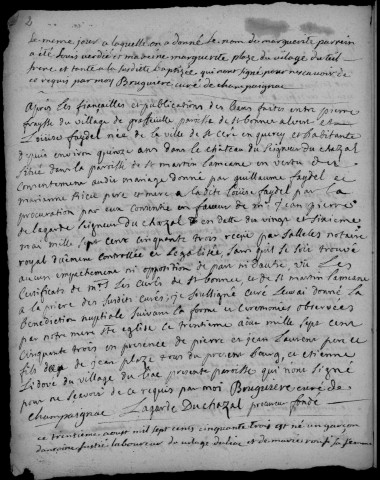 2
le meme jour a laquelle on a donné le nom de marguerite parrein
a été Louis verdié et maraine marguerite ploze du village du teil
frere et tante a la susdite baptizée qui nont signé pour ne scavoir de
ce requis par moy Bruguiere curé de champaignac
Apres les fiançailles et publications des bans faites entre pierre
du village de paroisse de st bonne alvere et
Louise faydel née de la ville de st Ceré en quercy et habitante
depuis environ quinze ans dans le château du Seigneur du chazal
situé dans la paroisse de st martin en vertu du
Consentement audit mariage donné par guillaume faydel et
marianne pere et mere a ladite Louise faydel par la
procuration par eux Consentie en faveur de mr jean pierre
de lagarde Seigneur du chazal en datte du vingt et sixieme
mai mille Sept cent cinquante trois reçu par Salles notaire
royal duement controllée et legalisée, sans quil se soit trouvé
aucun empechement ni opposition de part ni dautre vu Les
Certificats de mrs Les curés de st bonne et de st martin
a la priere des susdits curés, je soussigné curé Leur ai donné la
Benediction nuptiale suivant la forme et ceremonies observées
par notre mere ste eglise ce trentieme mille sept cent
Cinquante trois en presence de pierre et jean Laurens pere et
fils de jean ploze tous du present bourg, et etienne
Lidove du village du presente paroisse qui nont signé
pour ne scavoir de ce requis par moi Bruguiere curé de
champaignac Lagarde Duchazal procureur fondé
ce trentieme aoust mil sept cents cinquante trois est né un garçon
laboureur du village et de sa femme